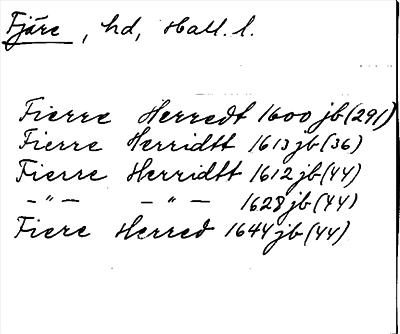 Fjäre, hd, Hall. l.
Fierre Herredt 1600 jb (291)
Fierre Herridtt 1613 jb (36)
Fierre Herridtt 1612 jb (44)
–"– –"– 1628 jb (44)
Fiere Herred 1644 jb (44)